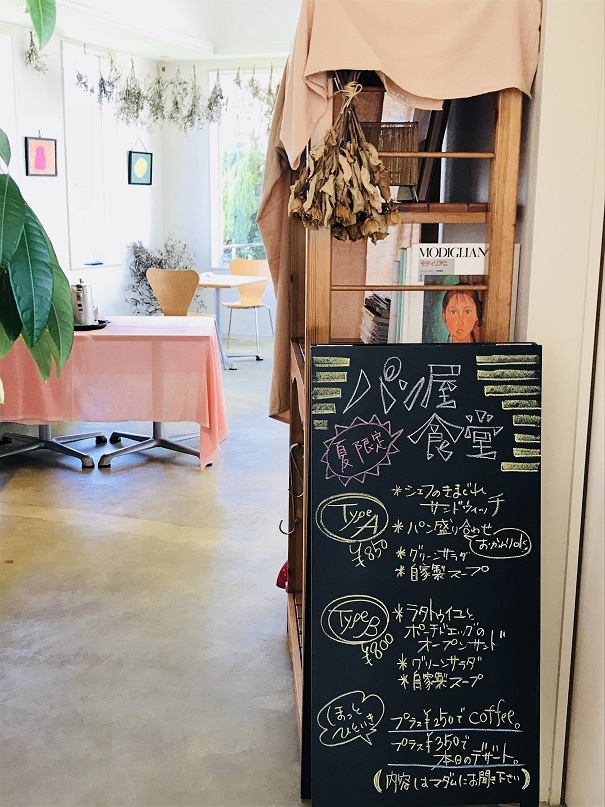 MODIGLIAN
モディリアニ
パン屋
食堂
夏限定
Type A
¥850
*シェフのきまぐれ
サンドウィッチ
*パン盛り合わせ
おかわりok
*グリーンサラダ
*自家製スープ
Type B
¥800
*ラタトゥイユと
ポーチドエッグの
オープンサンド
*グリーンサラダ
*自家製スープ
ほっと
ひといき
プラス¥250でcoffee。
プラス¥350で
本日のデザート。
(内容はマダムにお聞き下さい)